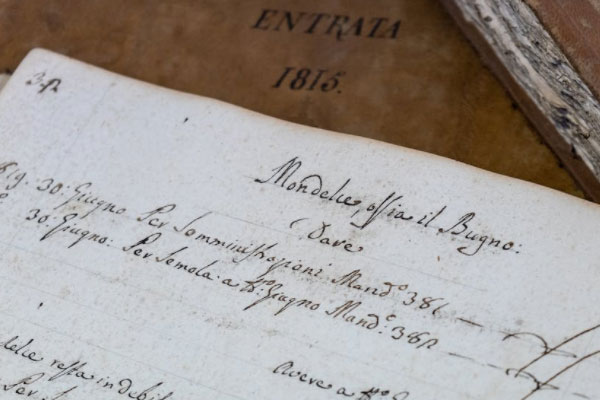 ENTRATA
1815.
Mondelce, ossia il Bugno:
Dare
30: Giugno Per Somministrazioni Mand.º 381
30: Giugno: Per Semola a tº Giugno Mand:º 382
resta in debit
Avere a
Per